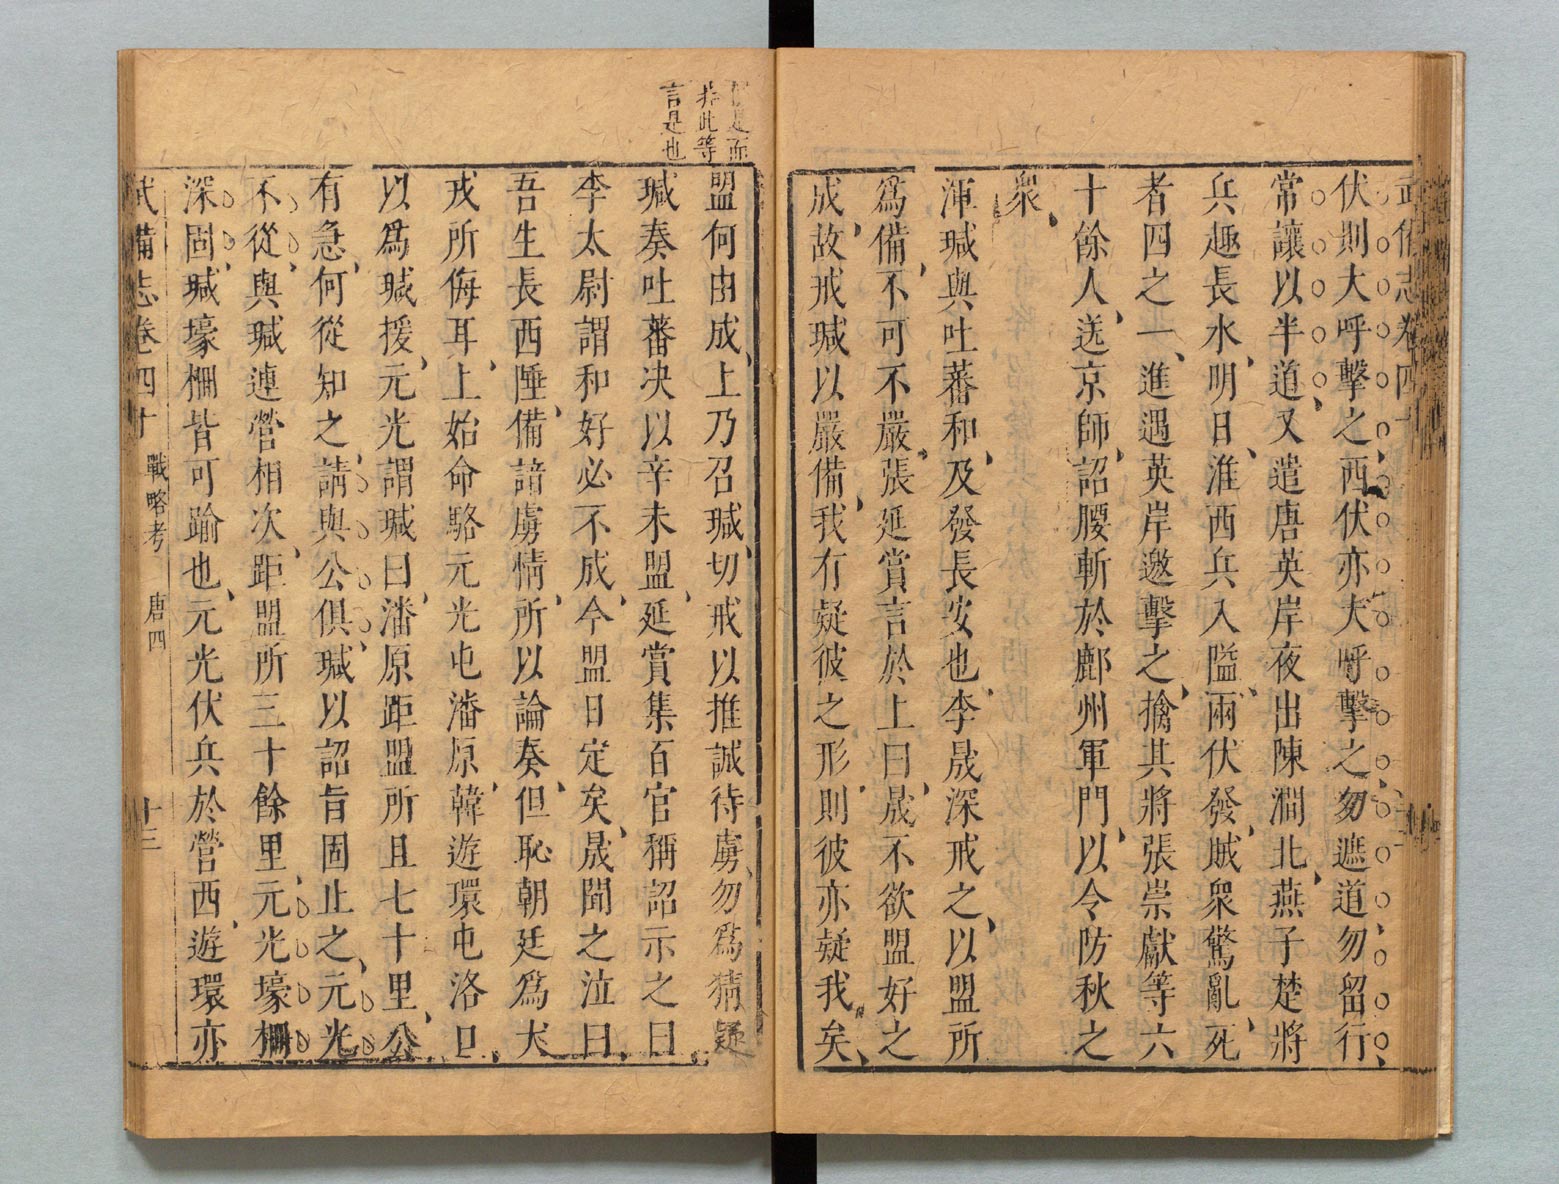 武備志卷四十
伏則大呼擊之西伏亦大呼擊之勿遮道勿留行
常讓以半道又遣唐英岸夜出陳澗北燕子楚將
兵趣長水明日淮西兵入隘兩伏發賊衆驚亂死
者四之一進遇英岸邀擊之擒其將張崇獻等六
十餘人送京師詔腰斬於鄜州軍門以令防秋之
衆
渾瑊與吐蕃和及發長安也李晟深戒之以盟所
爲備不可不嚴張延賞言於上曰晟不欲盟好之
成故戒瑊以嚴備我有疑彼之形則彼亦疑我矣
盟何由成上乃召瑊切戒以推誠待虜勿爲猜疑
瑊奏吐蕃决以辛未盟延賞集百官稱詔示之曰
李太尉謂和好必不成今盟日定矣晟聞之泣曰
吾生長西陲備諳虜情所以論奏但恥朝廷爲犬
戎所侮耳上始命駱元光屯潘原韓遊環屯洛口
以爲瑊援元光謂瑊曰潘原距盟所且七十里公
有急何從知之請與公俱瑊以詔旨固止之元光
不從與瑊連營相次距盟所三十餘里元光壕柵
深固瑊壕柵皆可踰也元光伏兵於營西遊環亦
武備志卷四十 戰畧考 唐四 十三
是而
非此等
言是也